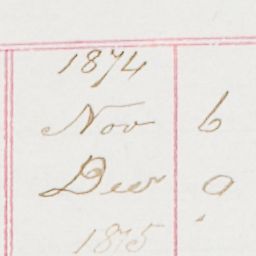 1874
Nov 6
Decr 9
1875